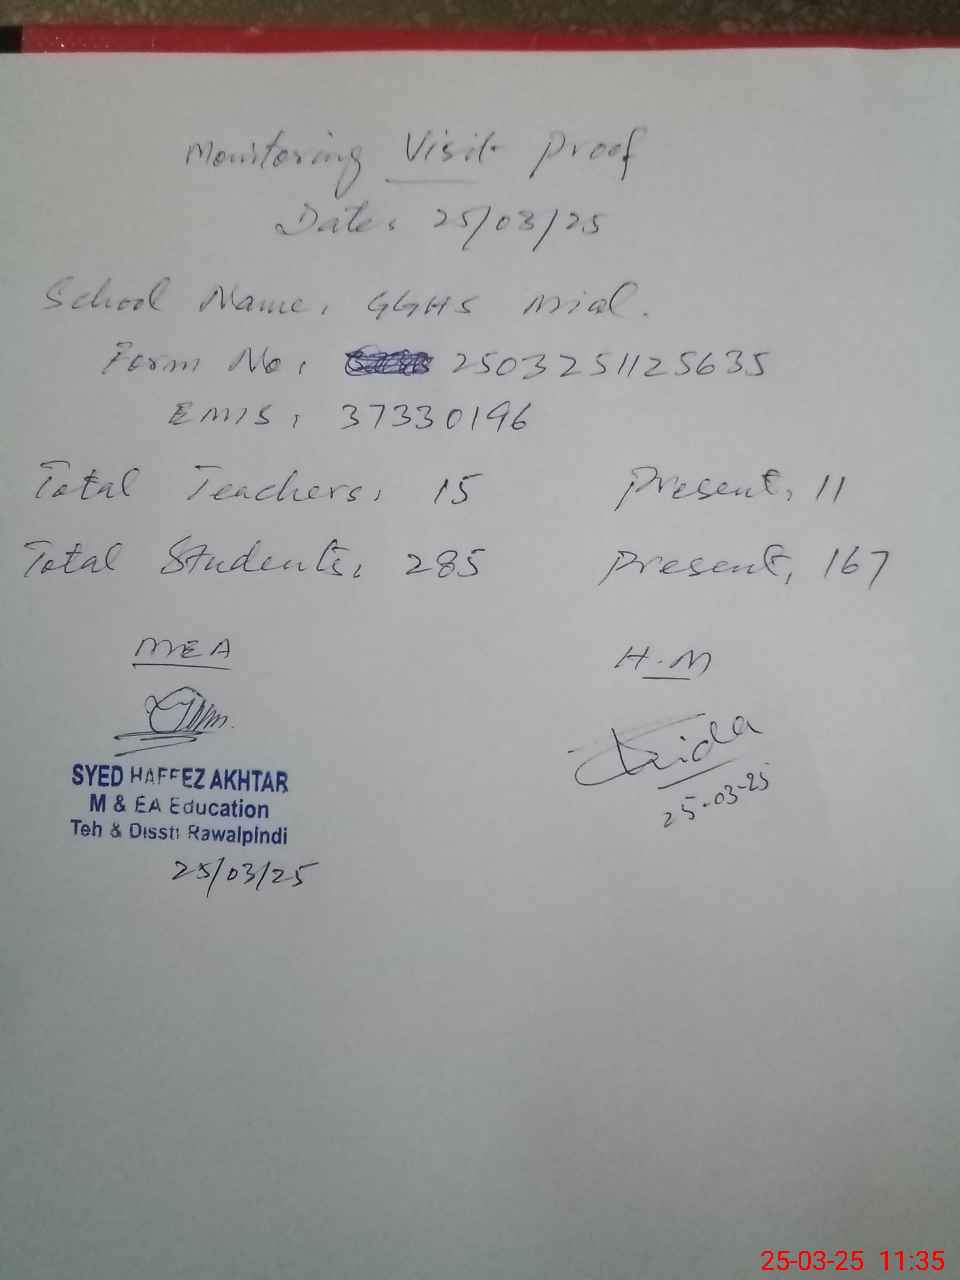 Monitoring Visit Proof
Date: 25/03/25
School Name: GGHS Mial.
Form No: 2503251125635
EMIS: 37330196
Total Teachers: 15 Present: 11
Total Students: 285 Present: 167
MEA H.M
SYED HAFFEZ AKHTAR
M & EA Education
Teh & Disstt Rawalpindi
25/03/25
25-03-25
25-03-25 11:35